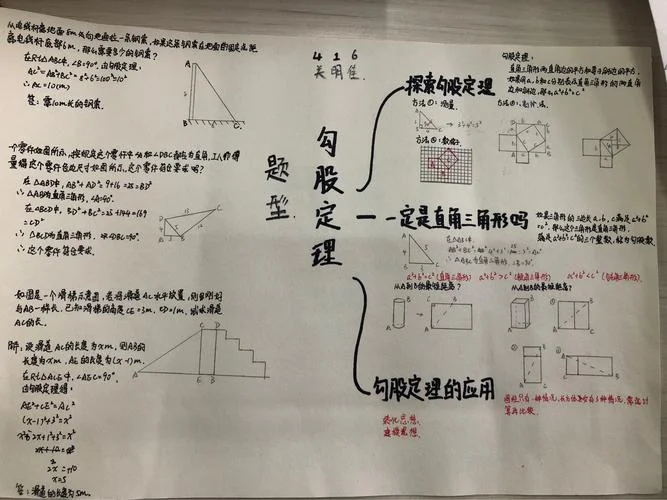 从电线杆离地面8m处向地面拉一条钢索，如果这条钢索在地面的固定点距
离电线杆底部6m，那么需要多少的钢索？
在Rt△ABC中，∠B=90°，由勾股定理：
AC²=AB²+BC²=8²+6²=100=10²
∴AC=10(cm)
答：需10m长的钢索．
A
B
C
一个零件如图所示，按规定这个零件中∠A和∠DBC都应为直角，工人师傅
量得这个零件各边尺寸如图所示，这个零件符合要求吗？
在△ABD中，AB²+AD²=9+16=25=BD²
∴△ABD为直角三角形，∠A=90°．
在△BCD中，BD²+BC²=25+144=169
=CD²
∴△BCD为直角三角形，∠DBC=90°．
∴这个零件符合要求．
如图是一个滑梯示意图，若将滑道AC水平放置，则刚好
与AB一样长，已知滑梯的高度CE=3m，CD=1m，试求滑道
AC的长．
解：设滑道AC的长度为xm，则AB的
长度为xm，AE的长度为(x-1)m．
在Rt△ACE中，∠AEC=90°，
由勾股定理得：
AE²+CE²=AC²
(x-1)²+3²=x²
x²-2x+1+3²=x²
2x=10
x=5
答：滑道的长度为5m．
A
E
B
C
D
416
关明佳
勾股定理
题型
探索勾股定理
方法①：测量
3²+4²=5²
方法②：数格子
勾股定理：
直角三角形两直角边的平方和等于斜边的平方，
如果用a，b和c分别表示直角三角形的两直角
边和斜边，那么a²+b²=c²
一定是直角三角形吗
在△ABC中
如果三角形的三边长a，b，c满足a²+b²
=c²，那么这个三角形是直角三角形．
满足a²+b²=c²的三个整数，称为勾股数
a²+b²=c²(直角三角形)
a²+b²>c²(锐角三角形)
a²+b²<c²(钝角三角形)
从A到B的最短距离？
从A到B的最短距离？
勾股定理的应用
转化思想．
建模思想．
圆柱只有一种情况，